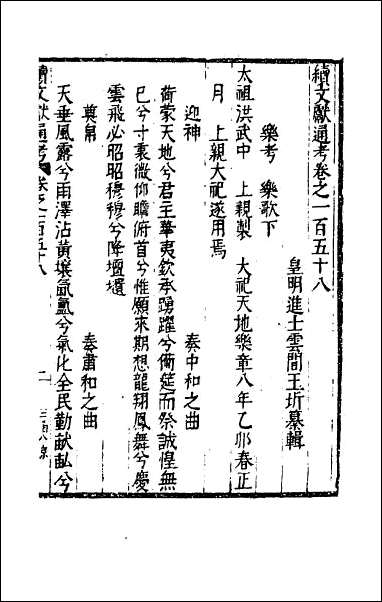 續文獻通考卷之一百五十八
皇明進士雲間王圻纂輯
樂考 樂歌下
太祖洪武中 上親製 大祀天地樂章八年乙卯春正
月 上親大祀遂用焉
迎神 奏中和之曲
荷蒙天地兮君主華夷欽承踴躍兮備筵而祭誠惶無
已兮寸衷微仰瞻俯首兮惟願來期想龍翔鳳舞兮慶
雲飛必昭昭穆穆兮降壇壝
奠帛 奏肅和之曲
天垂風露兮雨澤沾黃壤氤氳兮氣化全民勤畝畝兮
續文獻通考 卷之一百五十八 一